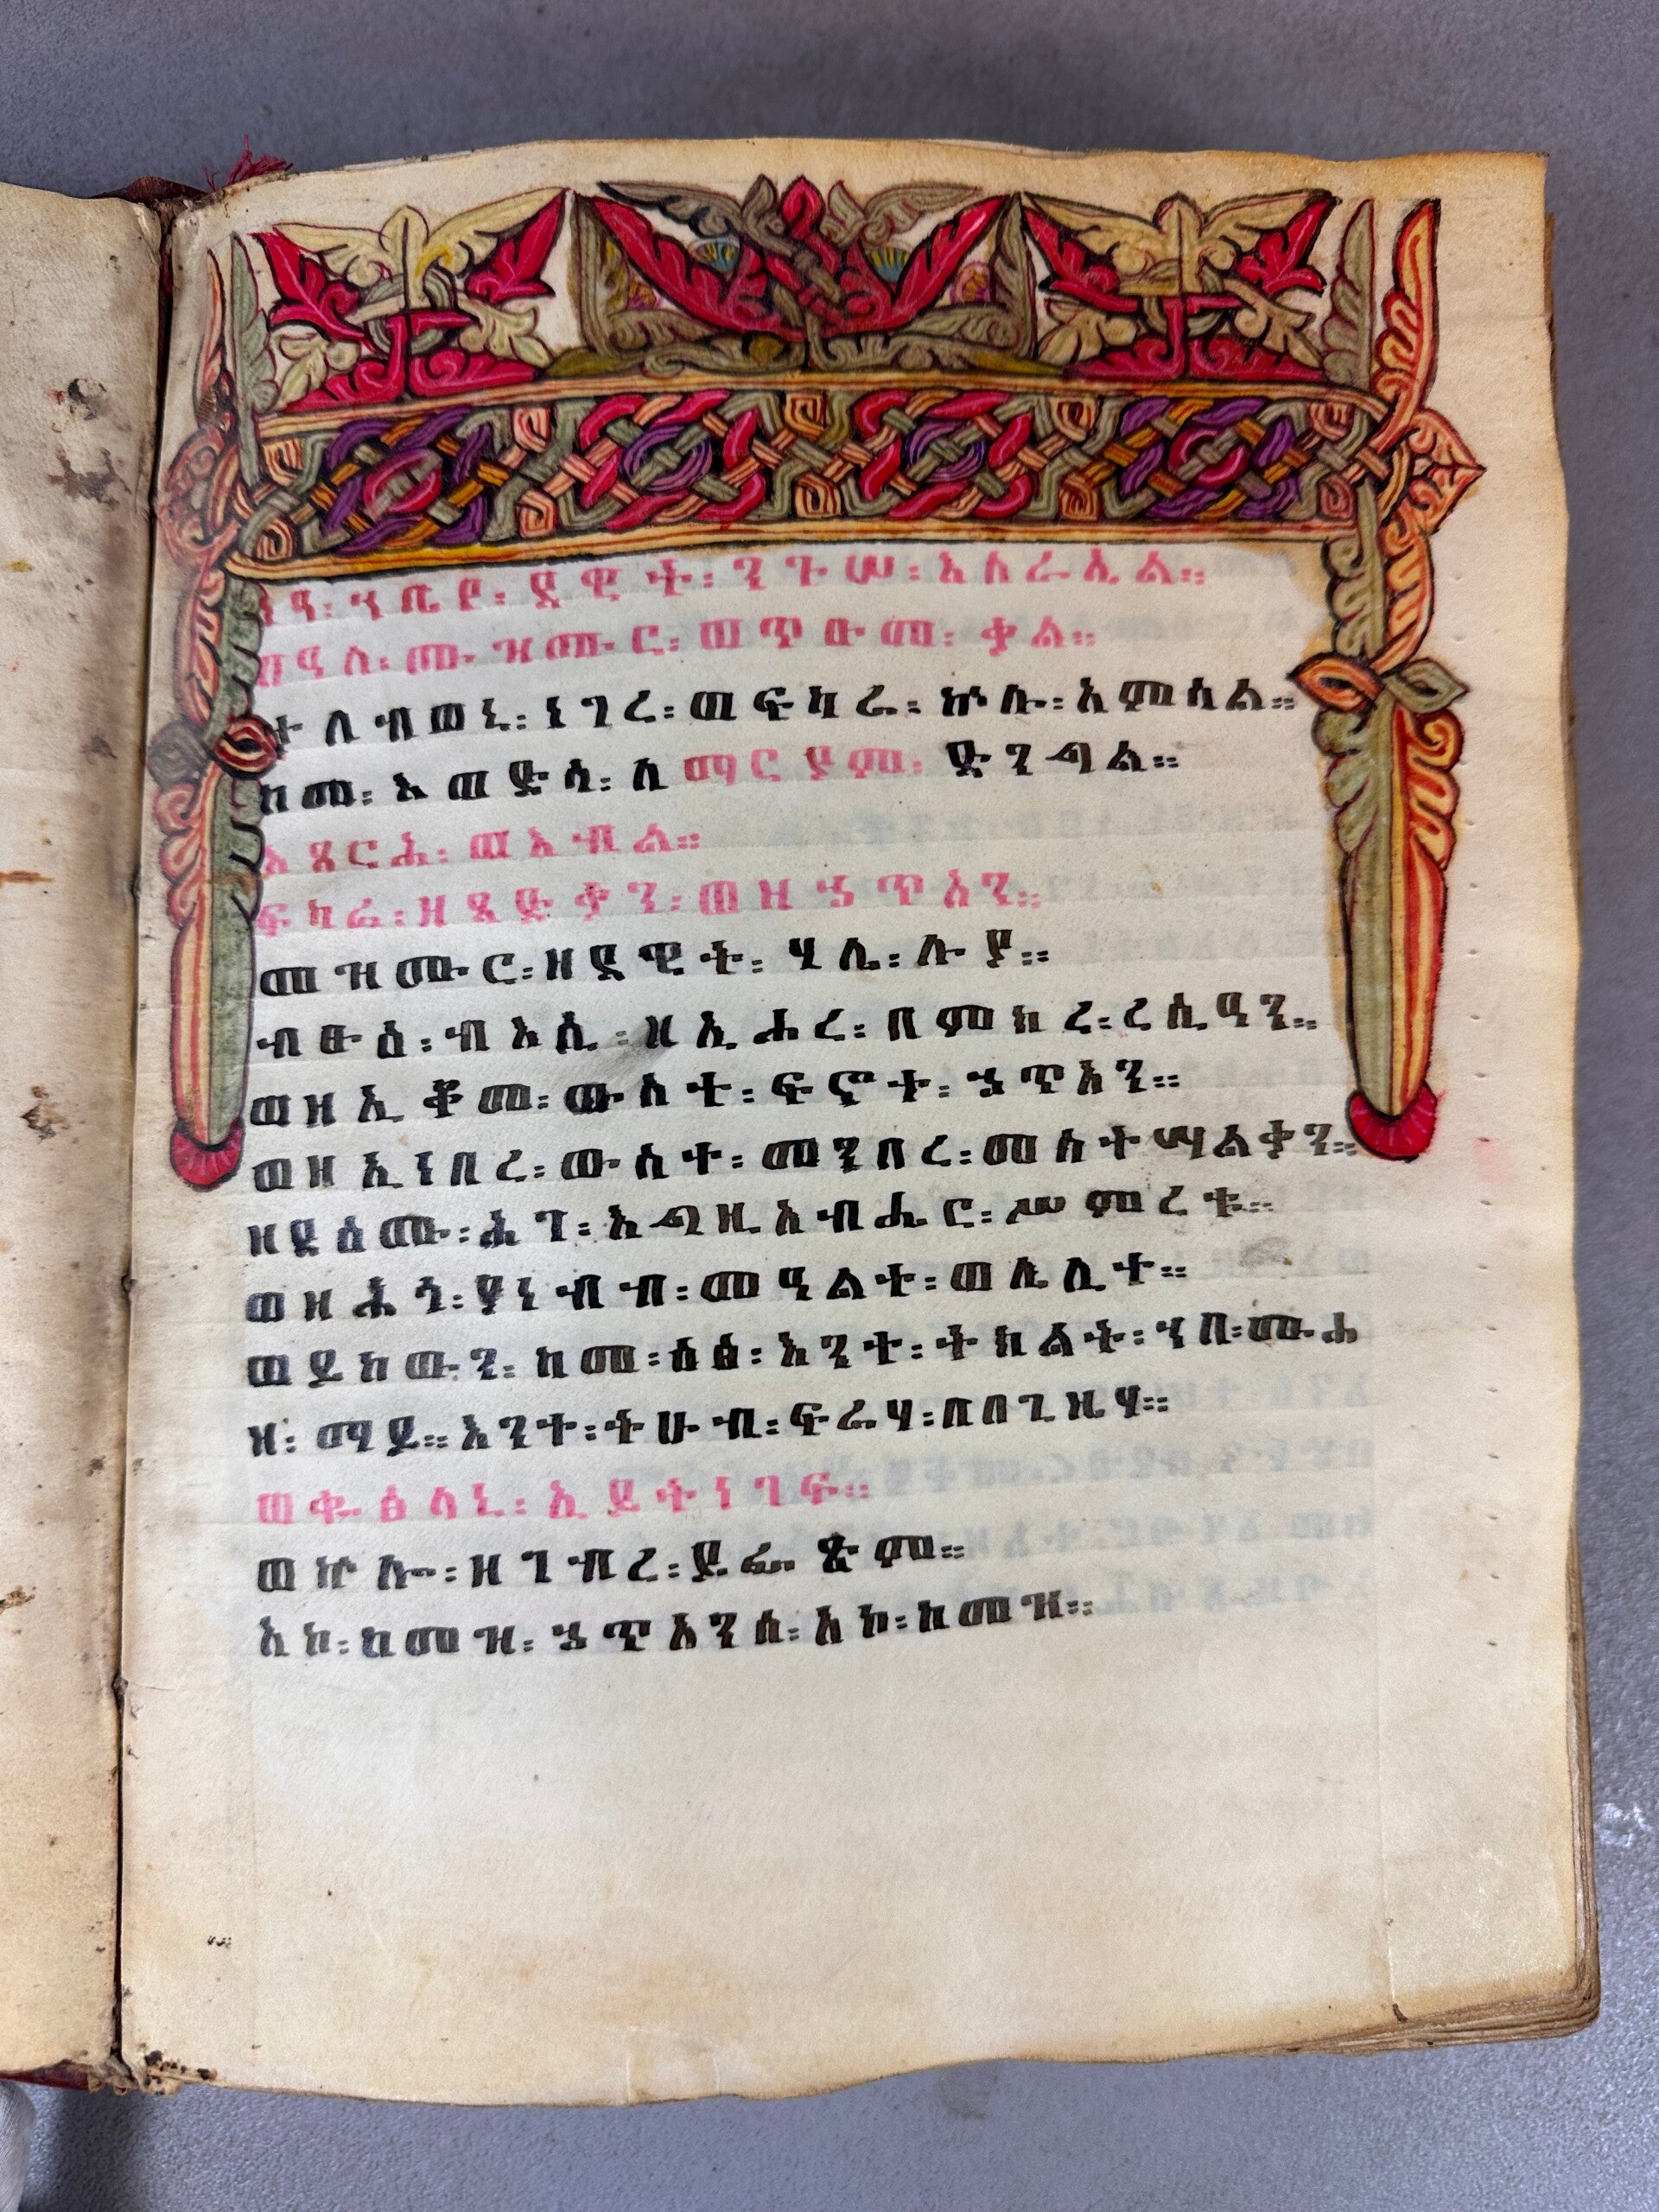 ነዓ፡ ኀቤየ፡ ዳዊት፡ ንጉሠ፡ እስራኤል።
በዓለ፡ መዝሙር፡ ወጥዑመ፡ ቃል።
ተለብወኒ፡ ነገረ፡ ወፍካሬ፡ ኵሉ፡ አምሳል።
ከመ፡ እወድሳ፡ ለማርያም፡ ድንግል።
እጼርሕ፡ ወእብል።
ፍካሬ፡ ዘጻድቃን፡ ወዘኃጥአን።
መዝሙር፡ ዘዳዊት፡ ሃሌ፡ ሉያ።
ብፁዕ፡ ብእሲ፡ ዘኢሖረ፡ በምክረ፡ ረሲዓን።
ወዘኢቆመ፡ ውስተ፡ ፍኖተ፡ ኃጥአን።
ወዘኢነበረ፡ ውስተ፡ መንበረ፡ መስተሣልቃን።
ዘዳዕሙ፡ ሕገ፡ እግዚአብሔር፡ ሥምረቱ።
ወዘሕጎ፡ ያነብብ፡ መዓልተ፡ ወሌሊተ።
ወይከውን፡ ከመ፡ ዕፅ፡ እንተ፡ ትክልት፡ ኀበ፡ ሙሐ
ዘ፡ ማይ። እንተ፡ ትሁብ፡ ፍሬሃ፡ በበጊዜሃ።
ወቈፅላኒ፡ ኢይትነገፍ።
ወኵሎ፡ ዘገብረ፡ ይፌጽም።
አኮ፡ ከመዝ፡ ኃጥአንሰ፡ አኮ፡ ከመዝ።